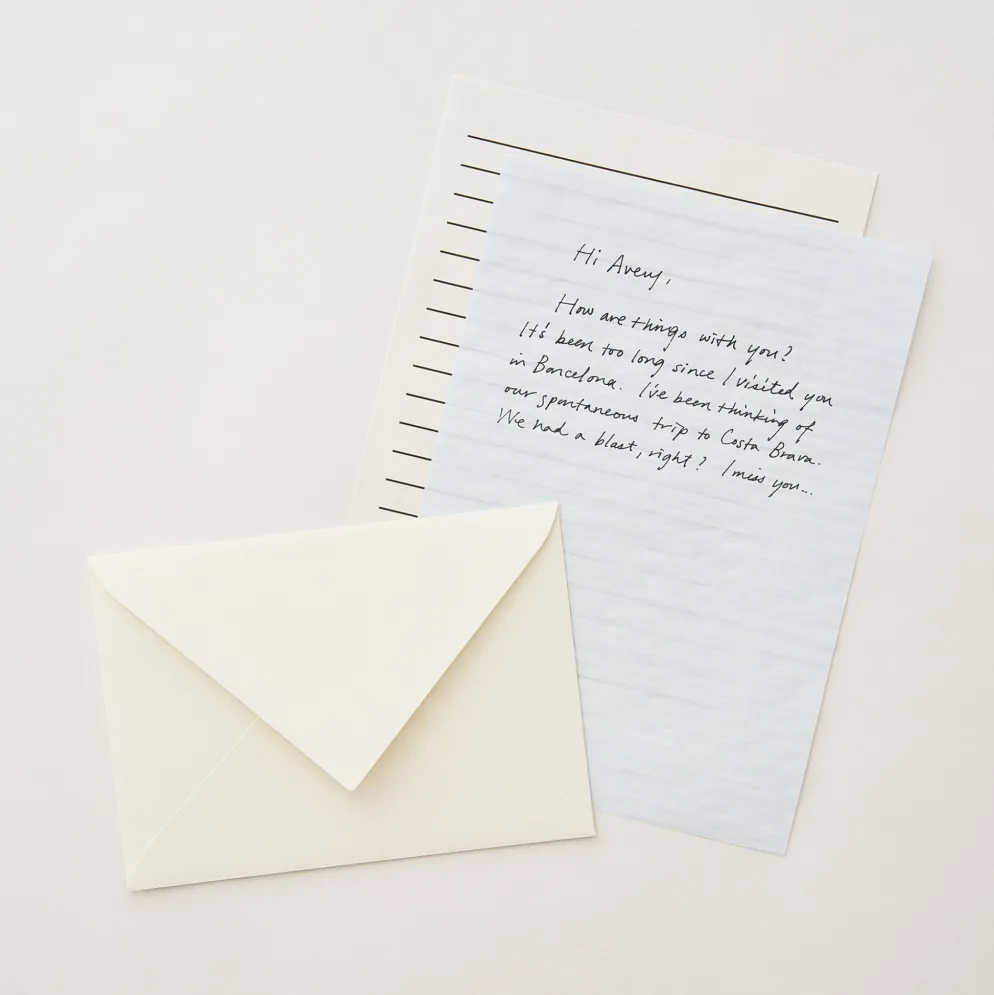 Hi Avery,
How are things with you?
It's been too long since I visited you
in Barcelona. I've been thinking of
our spontaneous trip to Costa Brava.
We had a blast, right? I miss you...